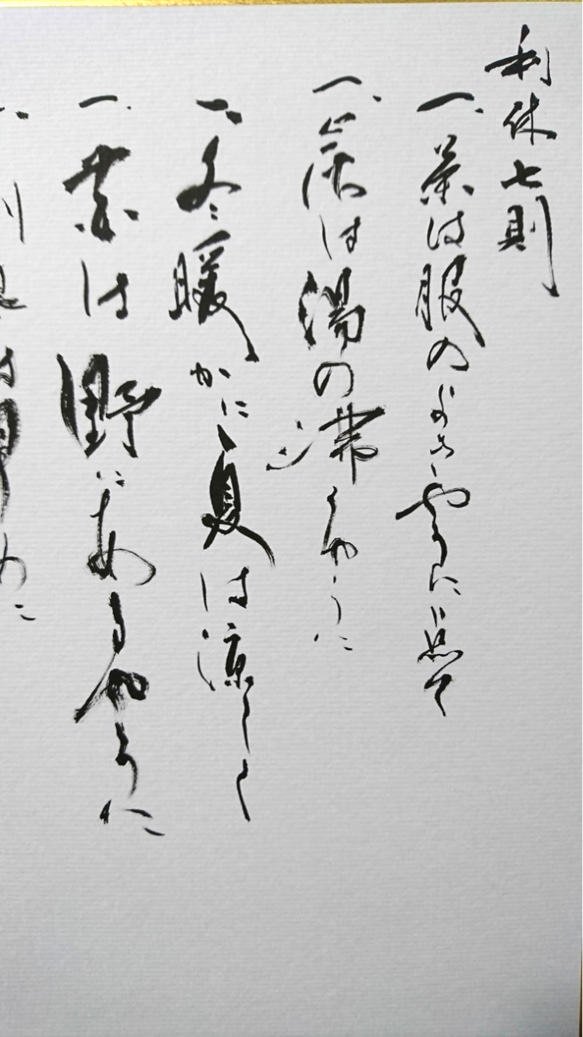 利休七則
一、茶は服のよきやうに点て
一、炭は湯の沸くやうに
一、冬暖かに夏は涼しく
一、花は野にあるやうに